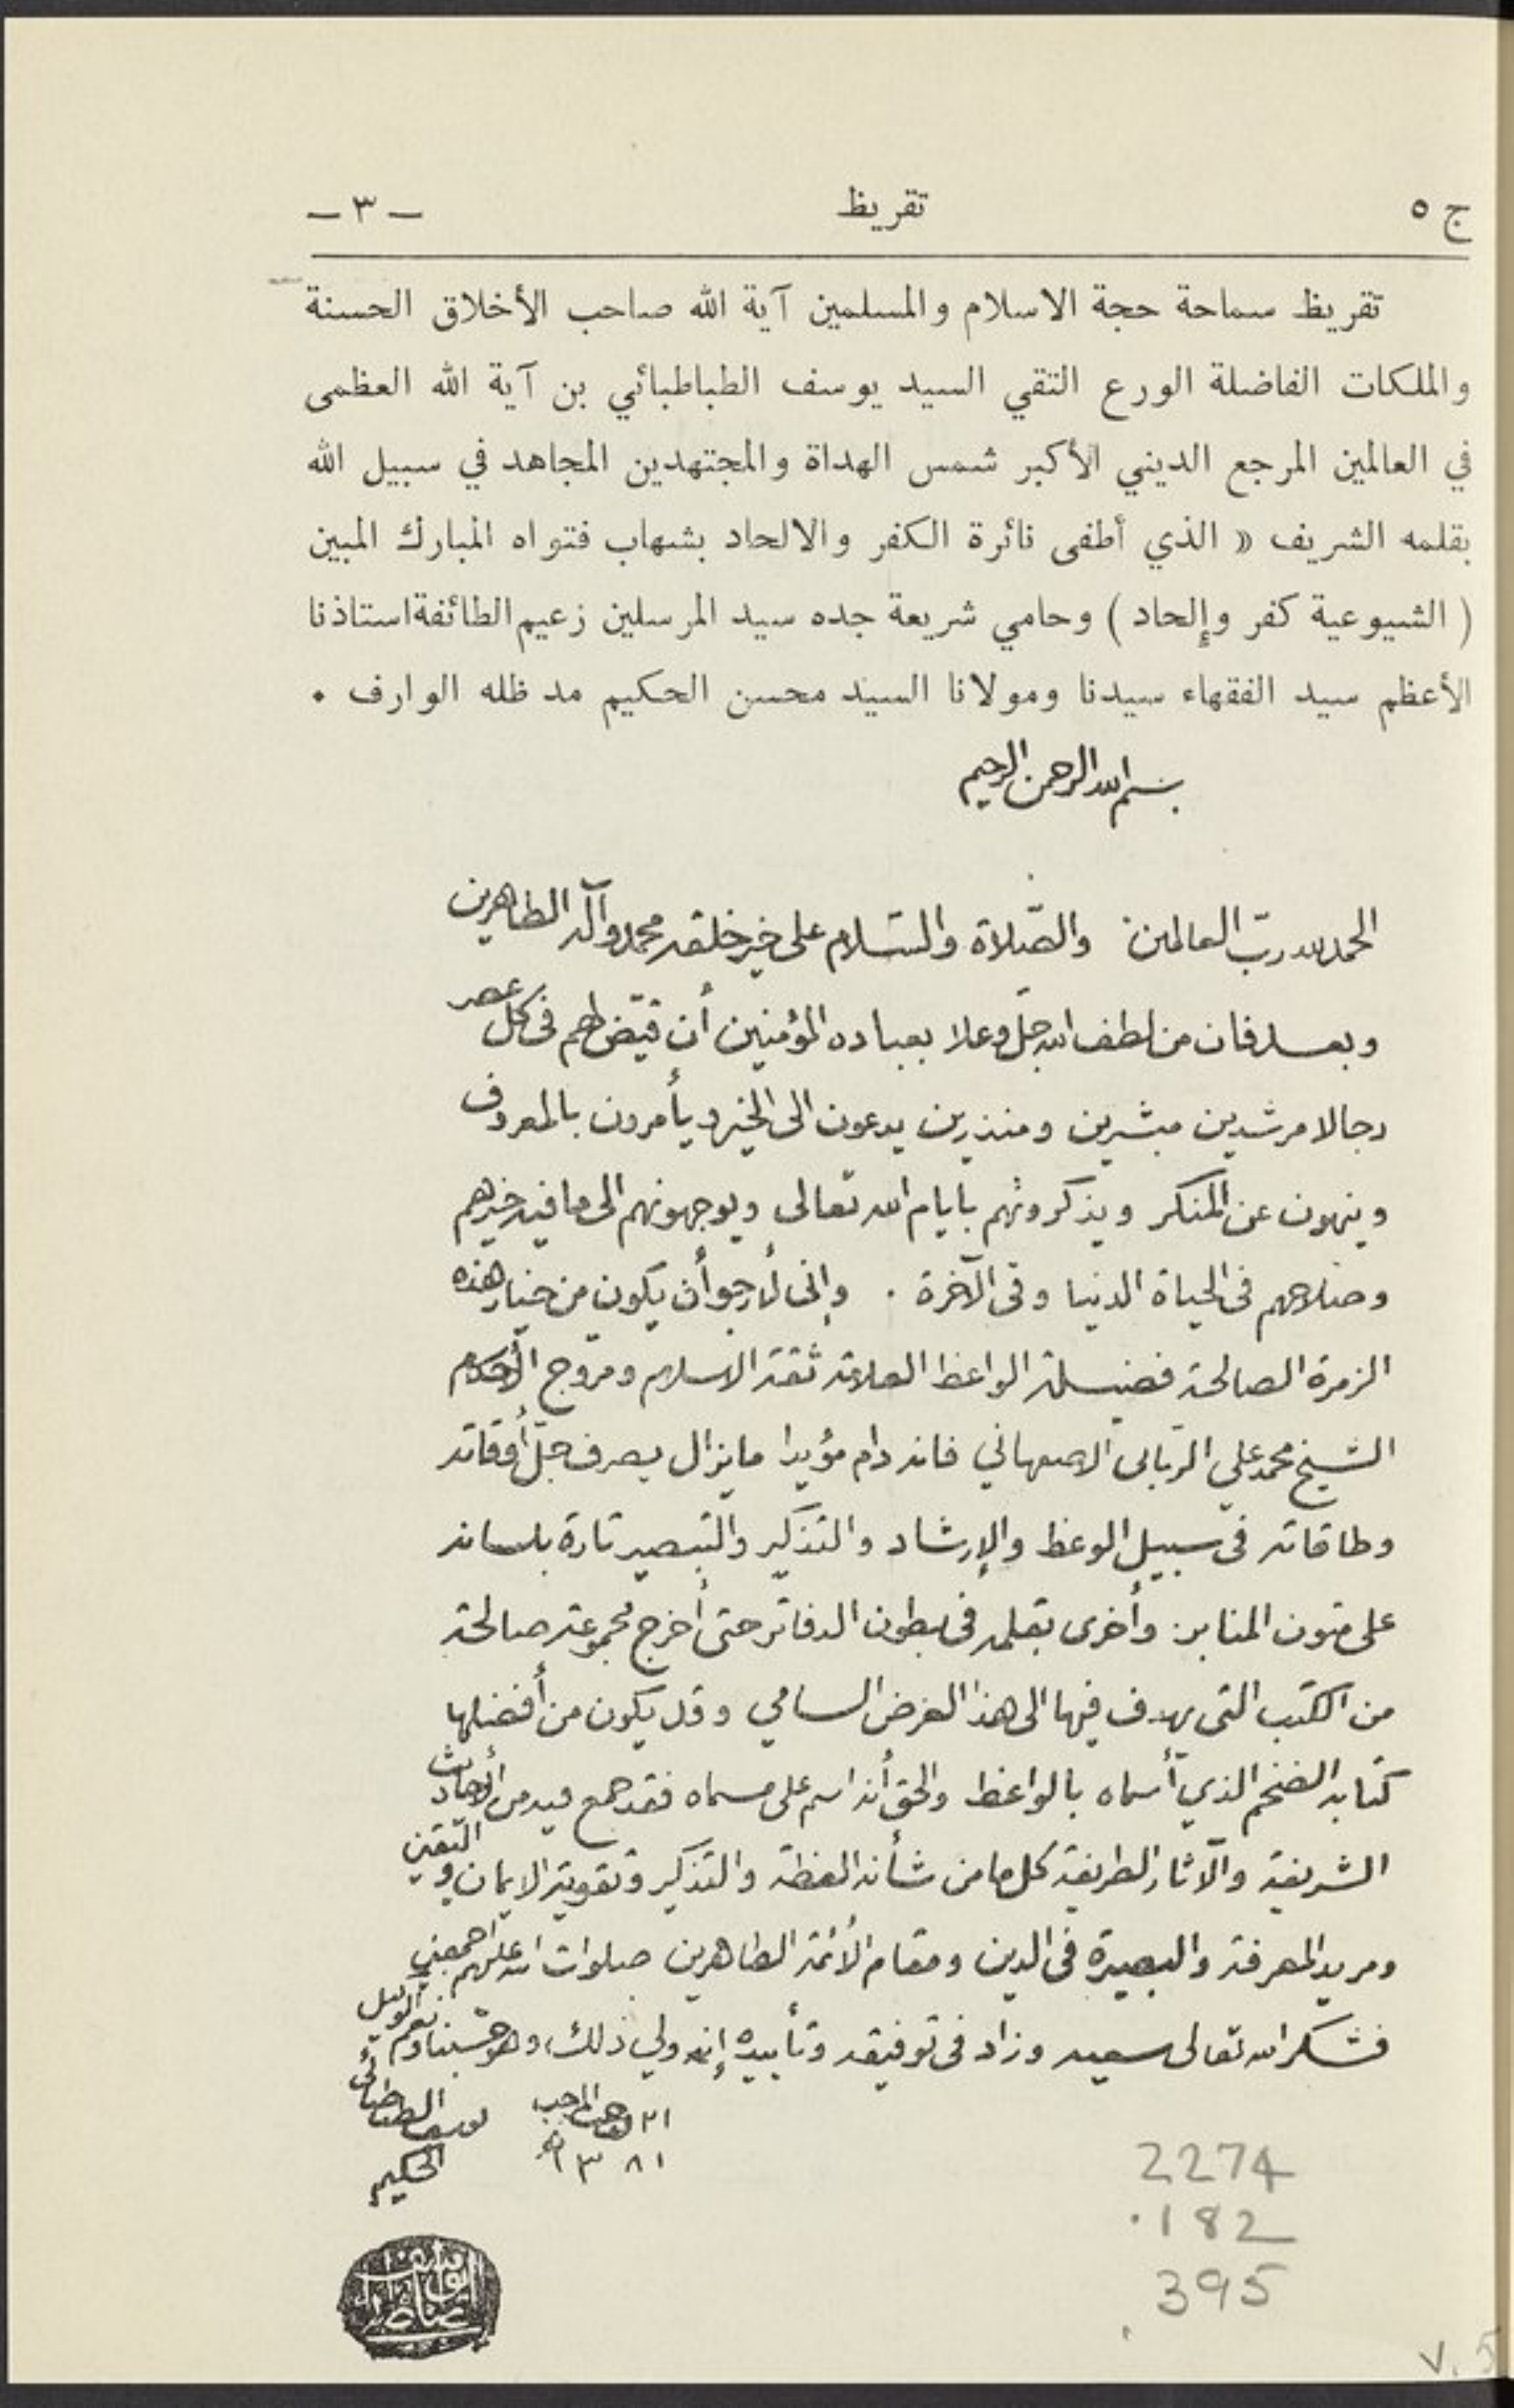 ج ٥ تقريظ — ٣ —
تقريظ سماحة حجة الاسلام والمسلمين آية الله صاحب الأخلاق الحسنة
والملكات الفاضلة الورع التقي السيد يوسف الطباطبائي بن آية الله العظمى
في العالمين المرجع الديني الأكبر شمس الهداة والمجتهدين المجاهد في سبيل الله
بقلمه الشريف « الذي أطفى نائرة الكفر والالحاد بشهاب فتواه المبارك المبين
( الشيوعية كفر وإلحاد ) وحامي شريعة جده سيد المرسلين زعيم الطائفة استاذنا
الأعظم سيد الفقهاء سيدنا ومولانا السيد محسن الحكيم مد ظله الوارف .
بسم الله الرحمن الرحيم
الحمد لله ربّ العالمين والصّلاة والسّلام على خير خلقه محمد وآله الطاهرين
وبعد فان من لطف الله جلّ وعلا بعباده المؤمنين أن قيّض لهم فى كل عصر
رجالا مرشدين مبشرين ومنذرين يدعون الى الخير ويأمرون بالمعروف
وينهون عن المنكر ويذكرونهم بايام الله تعالى ويوجهونهم الى ما فيه خيرهم
وصلاحهم فى الحياة الدنيا وفى الآخرة . وإنى لأرجو أن يكون من خيار هذه
الزمرة الصالحة فضيلة الواعظ العلامة ثقة الاسلام ومروج الأحكام
الشيخ محمد علي الربّانى الاصفهاني فانه دام مؤيدا ما يزال يصرف جلّ أوقاته
وطاقاته فى سبيل الوعظ والإرشاد والتذكير والتبصير تارة بلسانه
على متون المنابر وأخرى بقلمه فى بطون الدفاتر حتى أخرج مجموعة صالحة
من الكتب التى يهدف فيها الى هذا الغرض السامي وقد يكون من أفضلها
كتابه الضخم الذي أسماه بالواعظ والحق أنه اسم على مسماه فقد جمع فيه من الأحاديث
الشريفة والآثار الطريفة كل ما من شأنه العظة والتذكير وتقوية الايمان واليقين
ومريد المعرفة والبصيرة فى الدين ومقام الأئمة الطاهرين صلوات الله عليهم اجمعين
فشكر الله تعالى سعيه وزاد فى توفيقه وتأييده إنه ولي ذلك، وهو حسبنا ونعم الوكيل
٢١ رجب المرجب يوسف الطباطبائي
١٣٨١ الحكيم
2274
.182
.395
v. 5